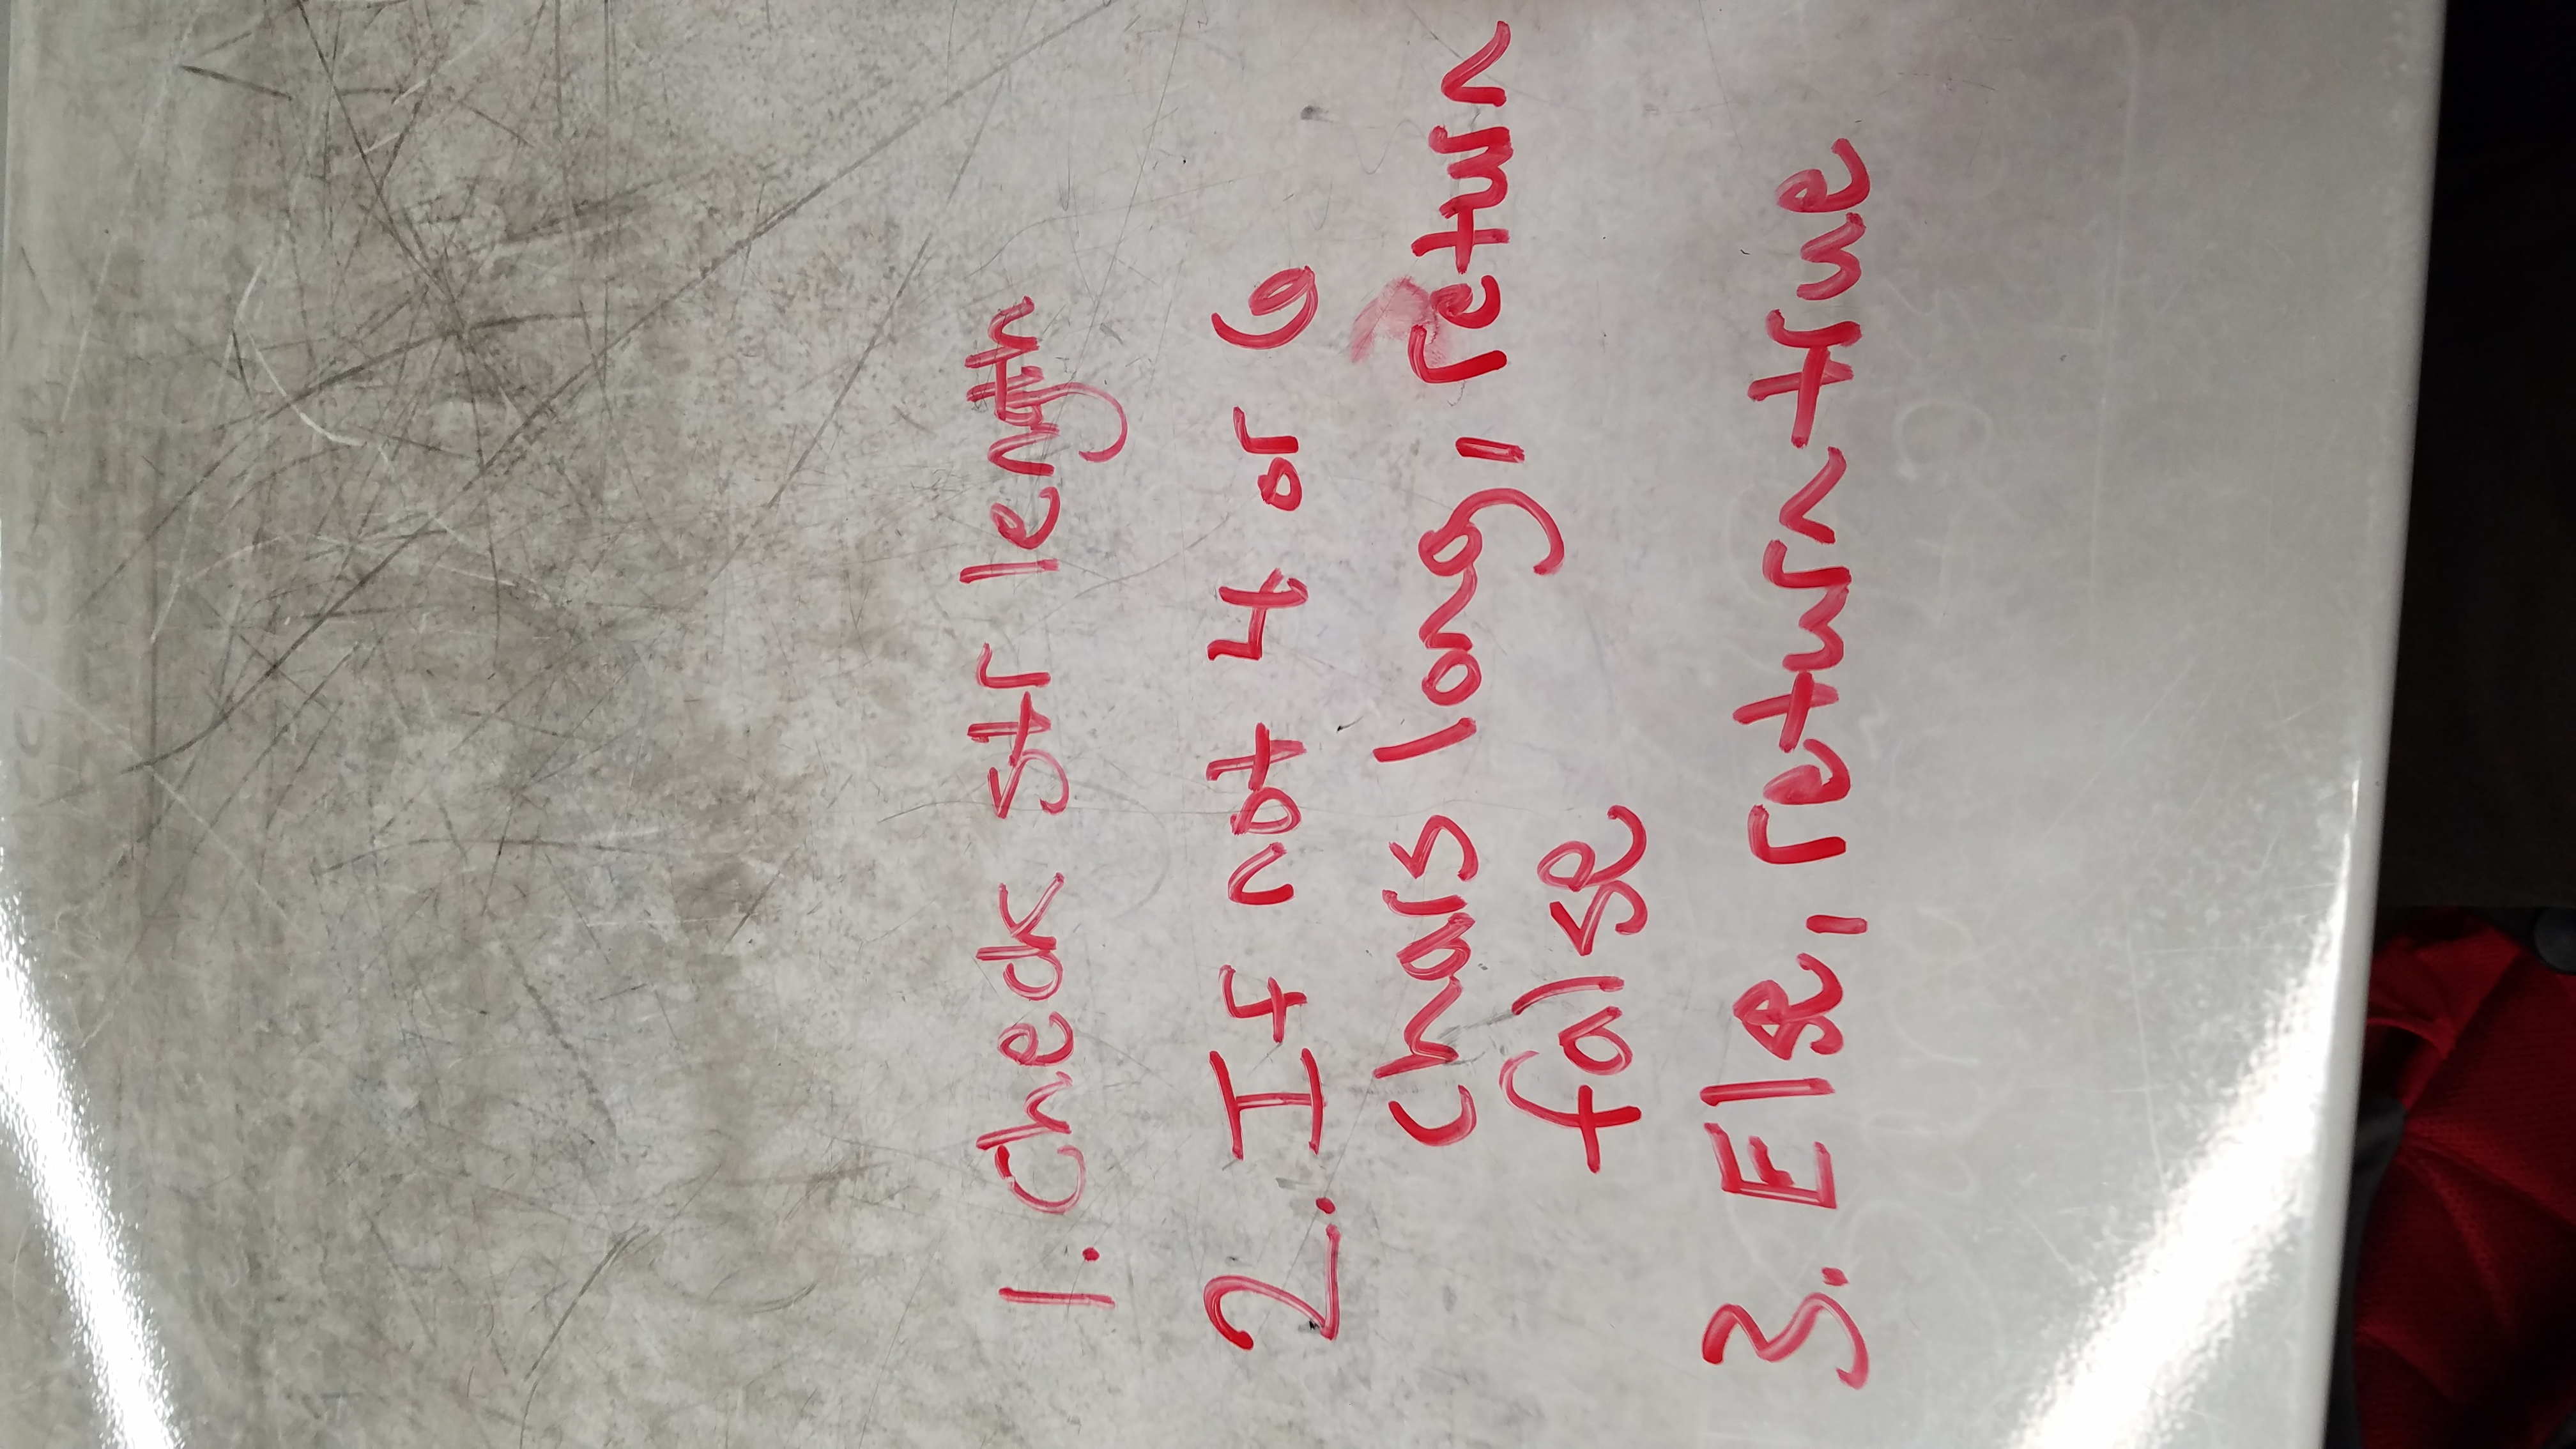 1. Check str length
2. If not 4 or 6
chars long, return
false
3. Else, return true